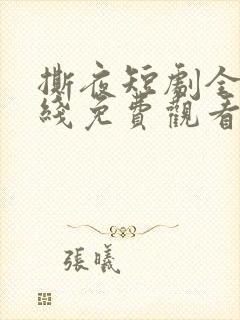 撕夜短劇全
綫免費觀看
張曦